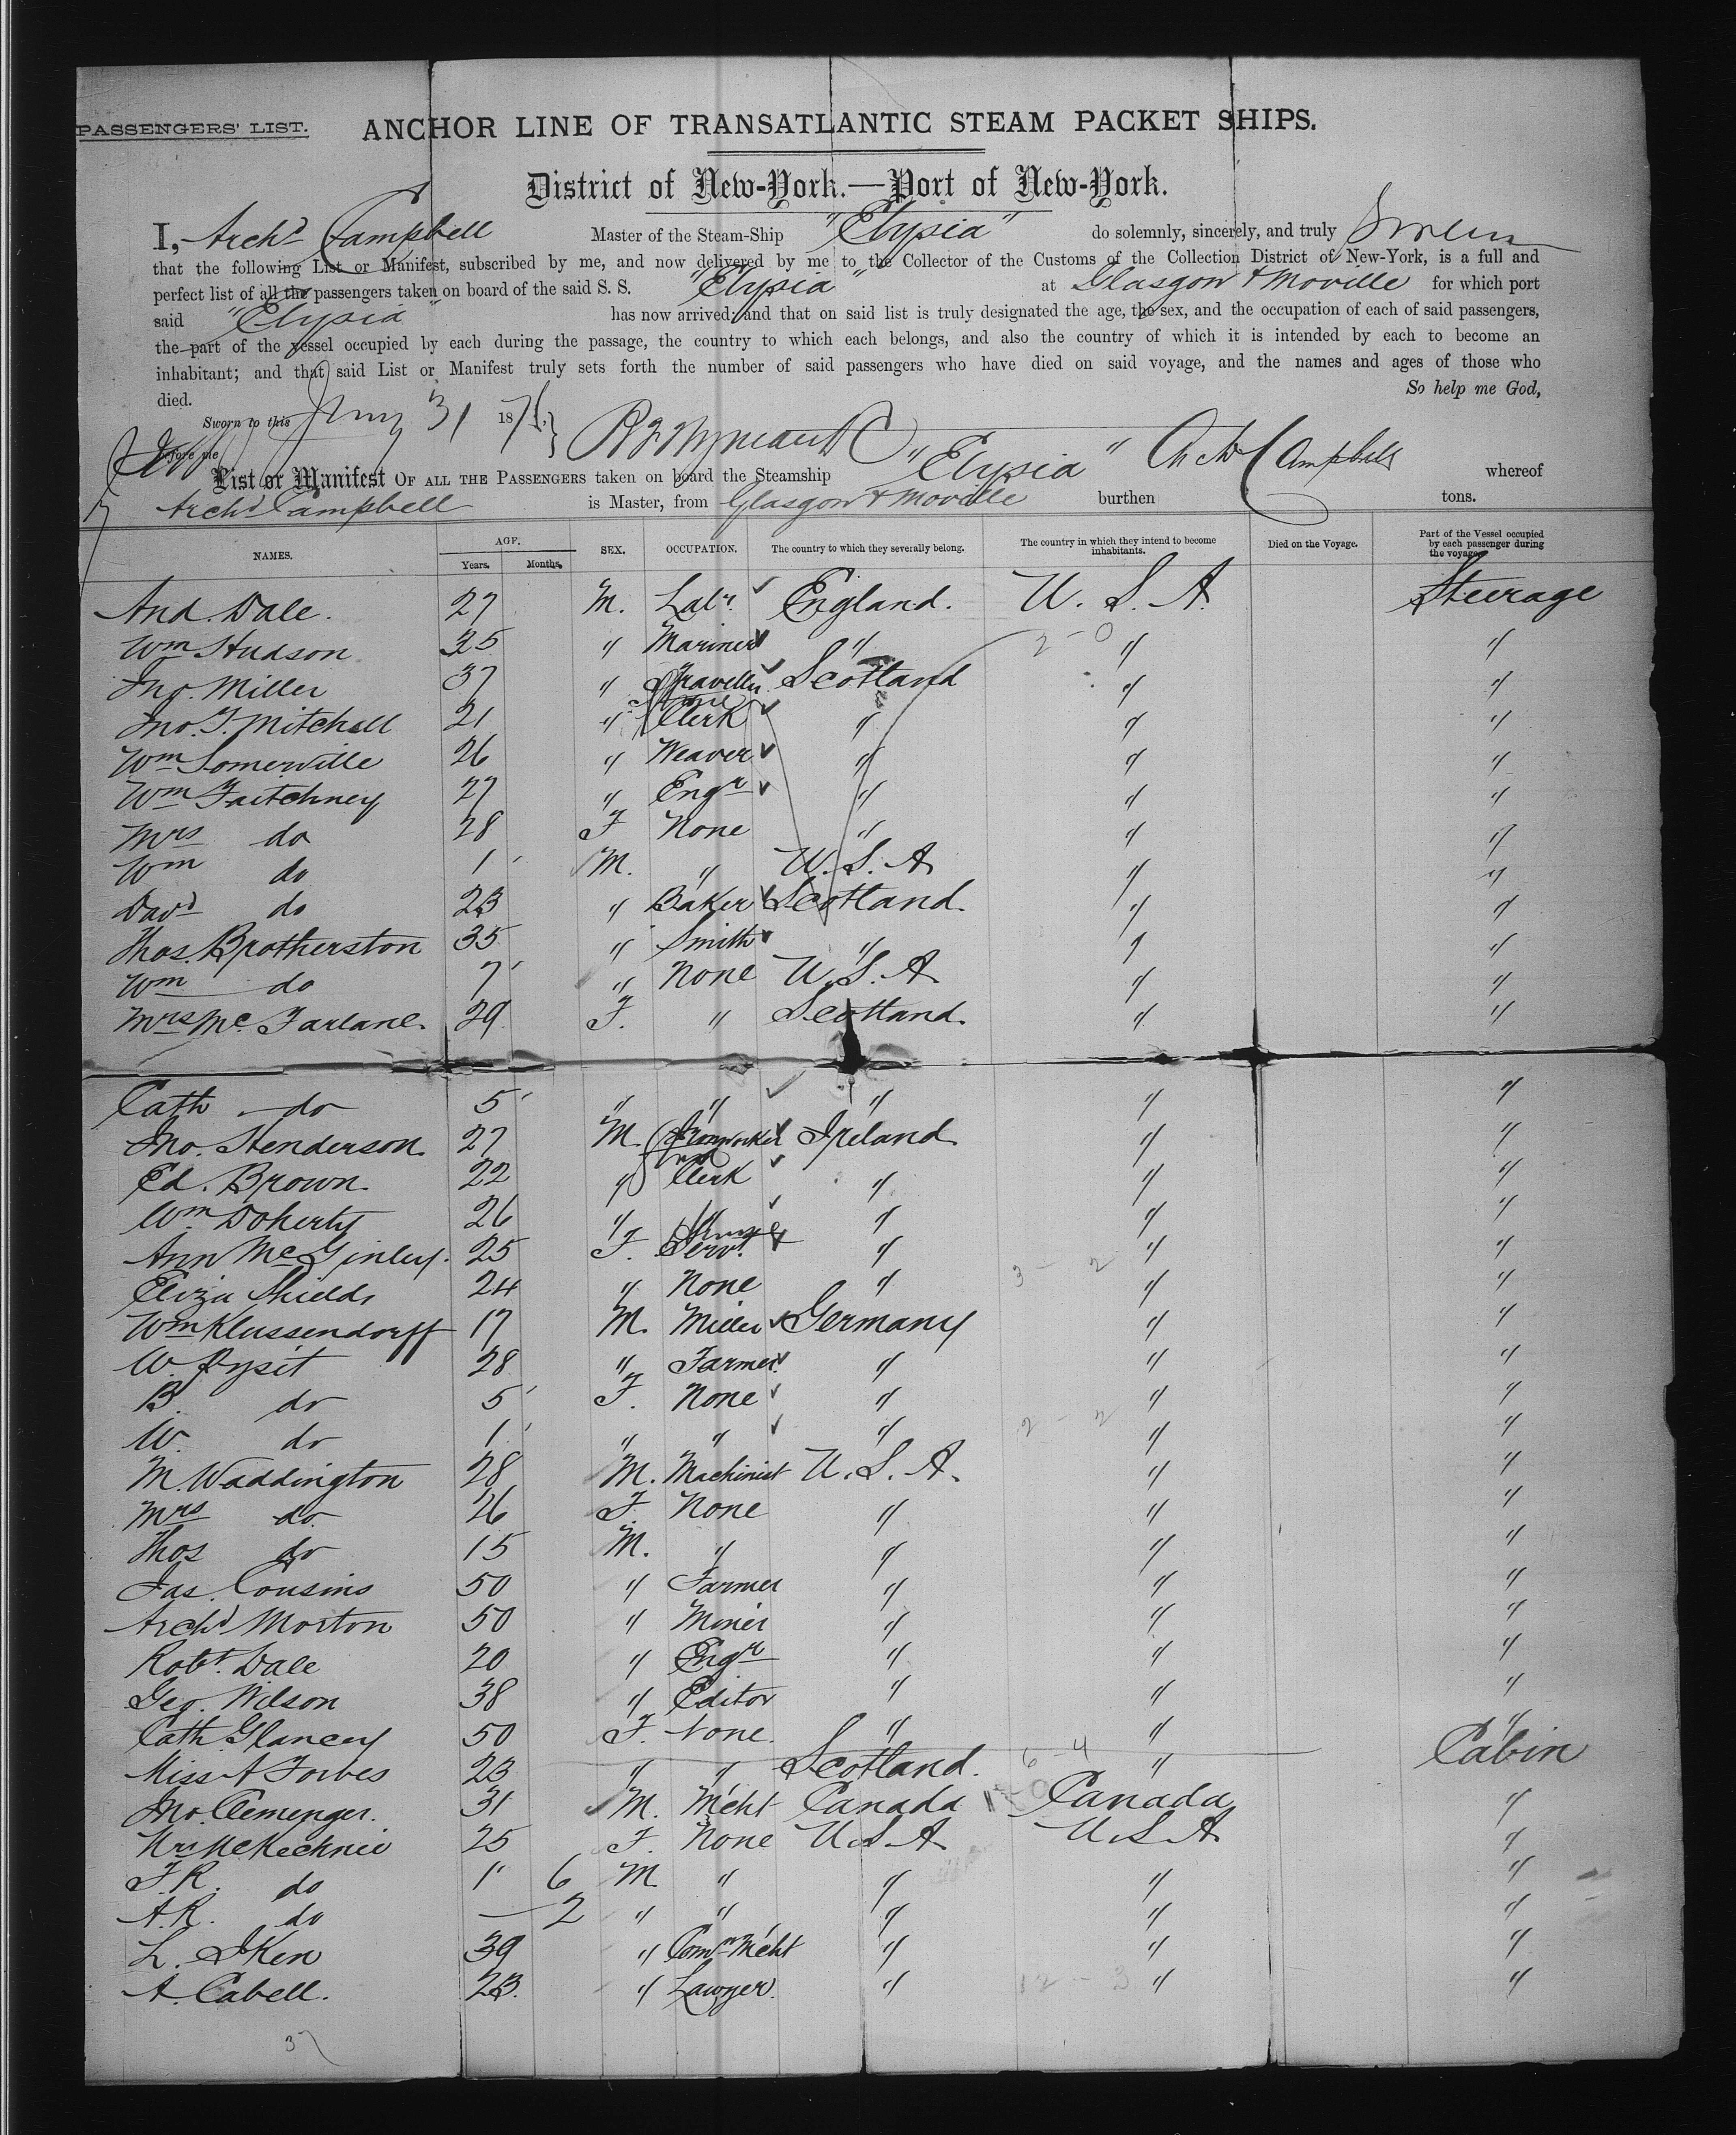 PASSENGERS' LIST.
ANCHOR LINE OF TRANSATLANTIC STEAM PACKET SHIPS.
District of New-York.—Port of New-York.
I, Archd Campbell Master of the Steam-Ship "Elysia" do solemnly, sincerely, and truly Swear
that the following List or Manifest, subscribed by me, and now delivered by me to the Collector of the Customs of the Collection District of New-York, is a full and
perfect list of all the passengers taken on board of the said S. S. "Elysia" at Glasgow & Moville for which port
said "Elysia" has now arrived, and that on said list is truly designated the age, the sex, and the occupation of each of said passengers,
the part of the vessel occupied by each during the passage, the country to which each belongs, and also the country of which it is intended by each to become an
inhabitant; and that said List or Manifest truly sets forth the number of said passengers who have died on said voyage, and the names and ages of those who
died. So help me God,
Sworn to this Jany 31 1876
before me
List or Manifest OF ALL THE PASSENGERS taken on board the Steamship "Elysia" Archd Campbell whereof
Archd Campbell is Master, from Glasgow & Moville burthen tons.
NAMES. AGE. Years. Months. SEX. OCCUPATION. The country to which they severally belong. The country in which they intend to become inhabitants. Died on the Voyage. Part of the Vessel occupied by each passenger during the voyage.
And. Dale. 27 M. Labr. England. U. S. A. Steerage
Wm Hudson 25 " Mariner " " "
Jno. Miller 37 " Traveller Scotland " "
Jno. T. Mitchell 21 " Clerk " " "
Wm Somerville 26 " Weaver " " "
Wm Faitchney 27 " Engr " " "
Mrs do 28 F None " " "
Wm do 1 M. " U. S. A " "
Davd do 23 " Baker Scotland. " "
Thos. Brotherston 35 " Smith " " "
Wm do 7 " None U. S. A " "
Mrs Mc Farlane. 29 F. " Scotland. " "
Cath do 5 " " " " "
Jno. Henderson. 27 M. Ironworker Ireland. " "
Ed. Brown. 22 " Clerk " " "
Wm Doherty 26 " " " " "
Ann McGinley. 25 F. Servt " " "
Eliza Shields 24 " None " " "
Wm Klussendorff 17 M. Miller Germany " "
W. Pysit 28 " Farmer " " "
B. do 5 F. None " " "
W. do 1 " " " " "
M. Waddington 28 M. Machinist U. S. A. " "
Mrs do 26 F. None " " "
Thos do 15 M. " " " "
Jas. Cousins 50 " Farmer " " "
Archd Morton 50 " Miner " " "
Robt. Dale 20 " Engr " " "
Geo. Wilson 38 " Editor " " "
Cath Glancey 50 F. None. " " "
Miss A Forbes 23 " " Scotland. " Cabin
Jno. Clemenger. 31 M. Mcht Canada Canada "
Mrs McKechnie 25 F. None U. S. A U. S. A "
F. R. do 1 6 M " " " "
A. R. do — 2 " " " " "
L. Iken 39 " Comn Mcht " " "
A. Cabell. 23. " Lawyer. " " "
37